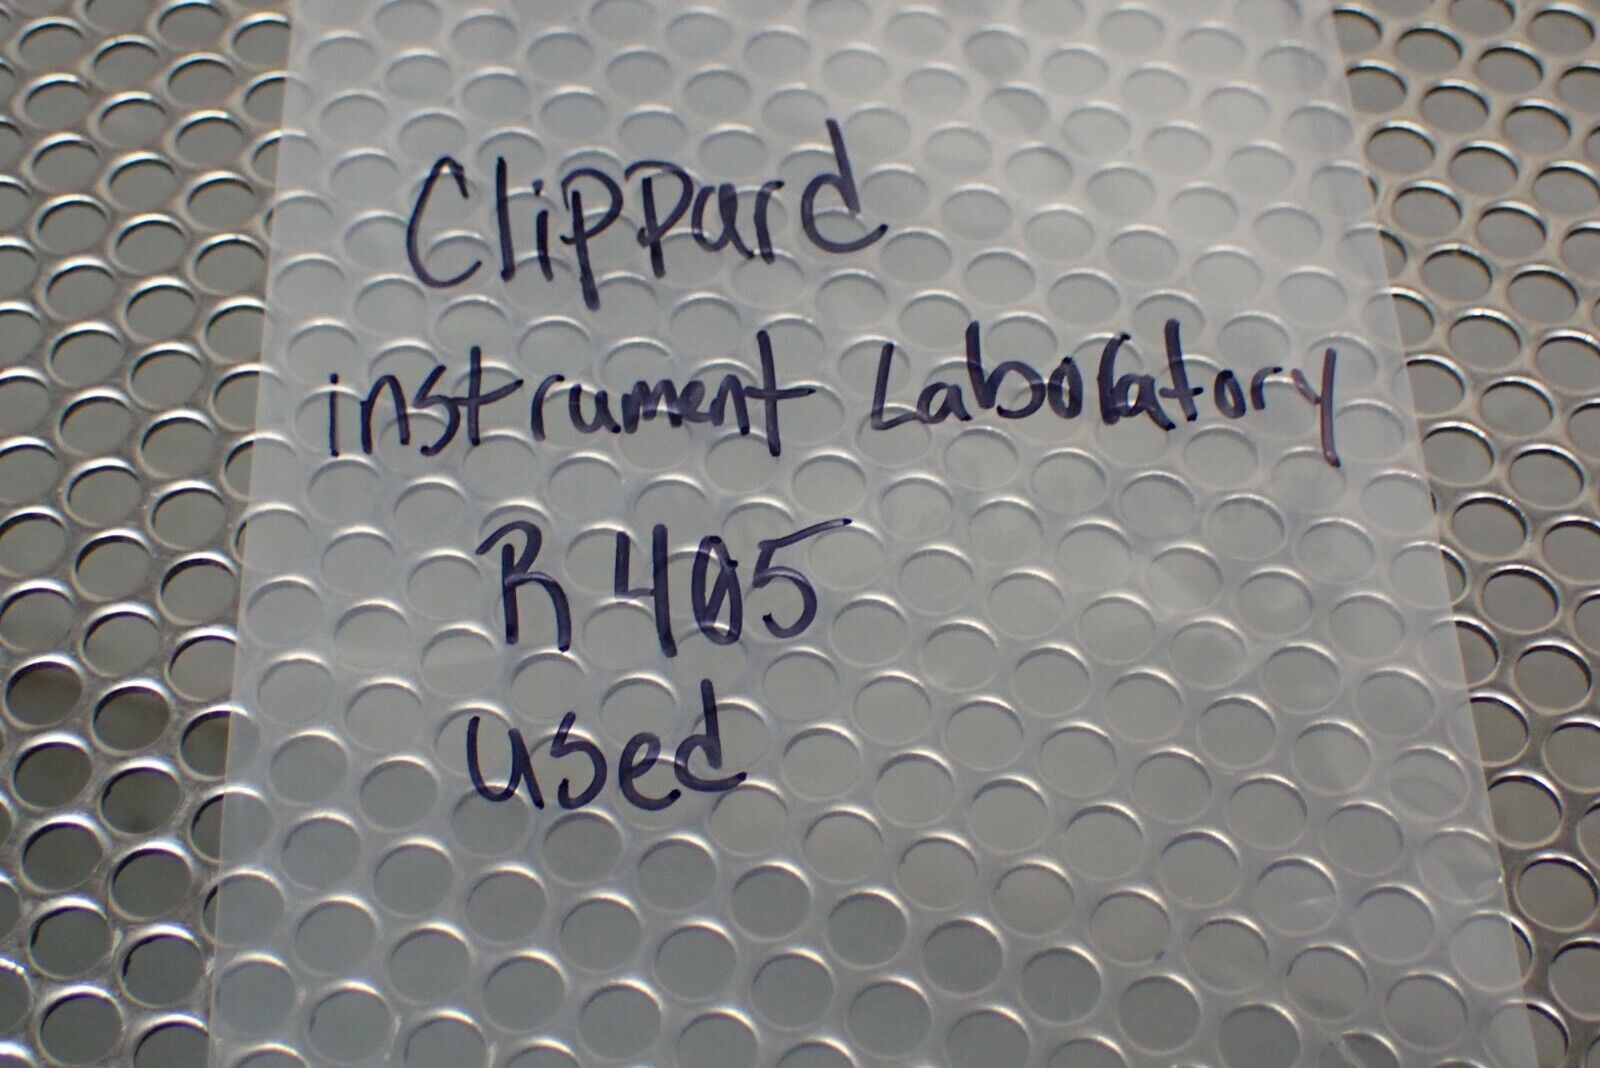 Clippard
instrument Laboratory
R405
used